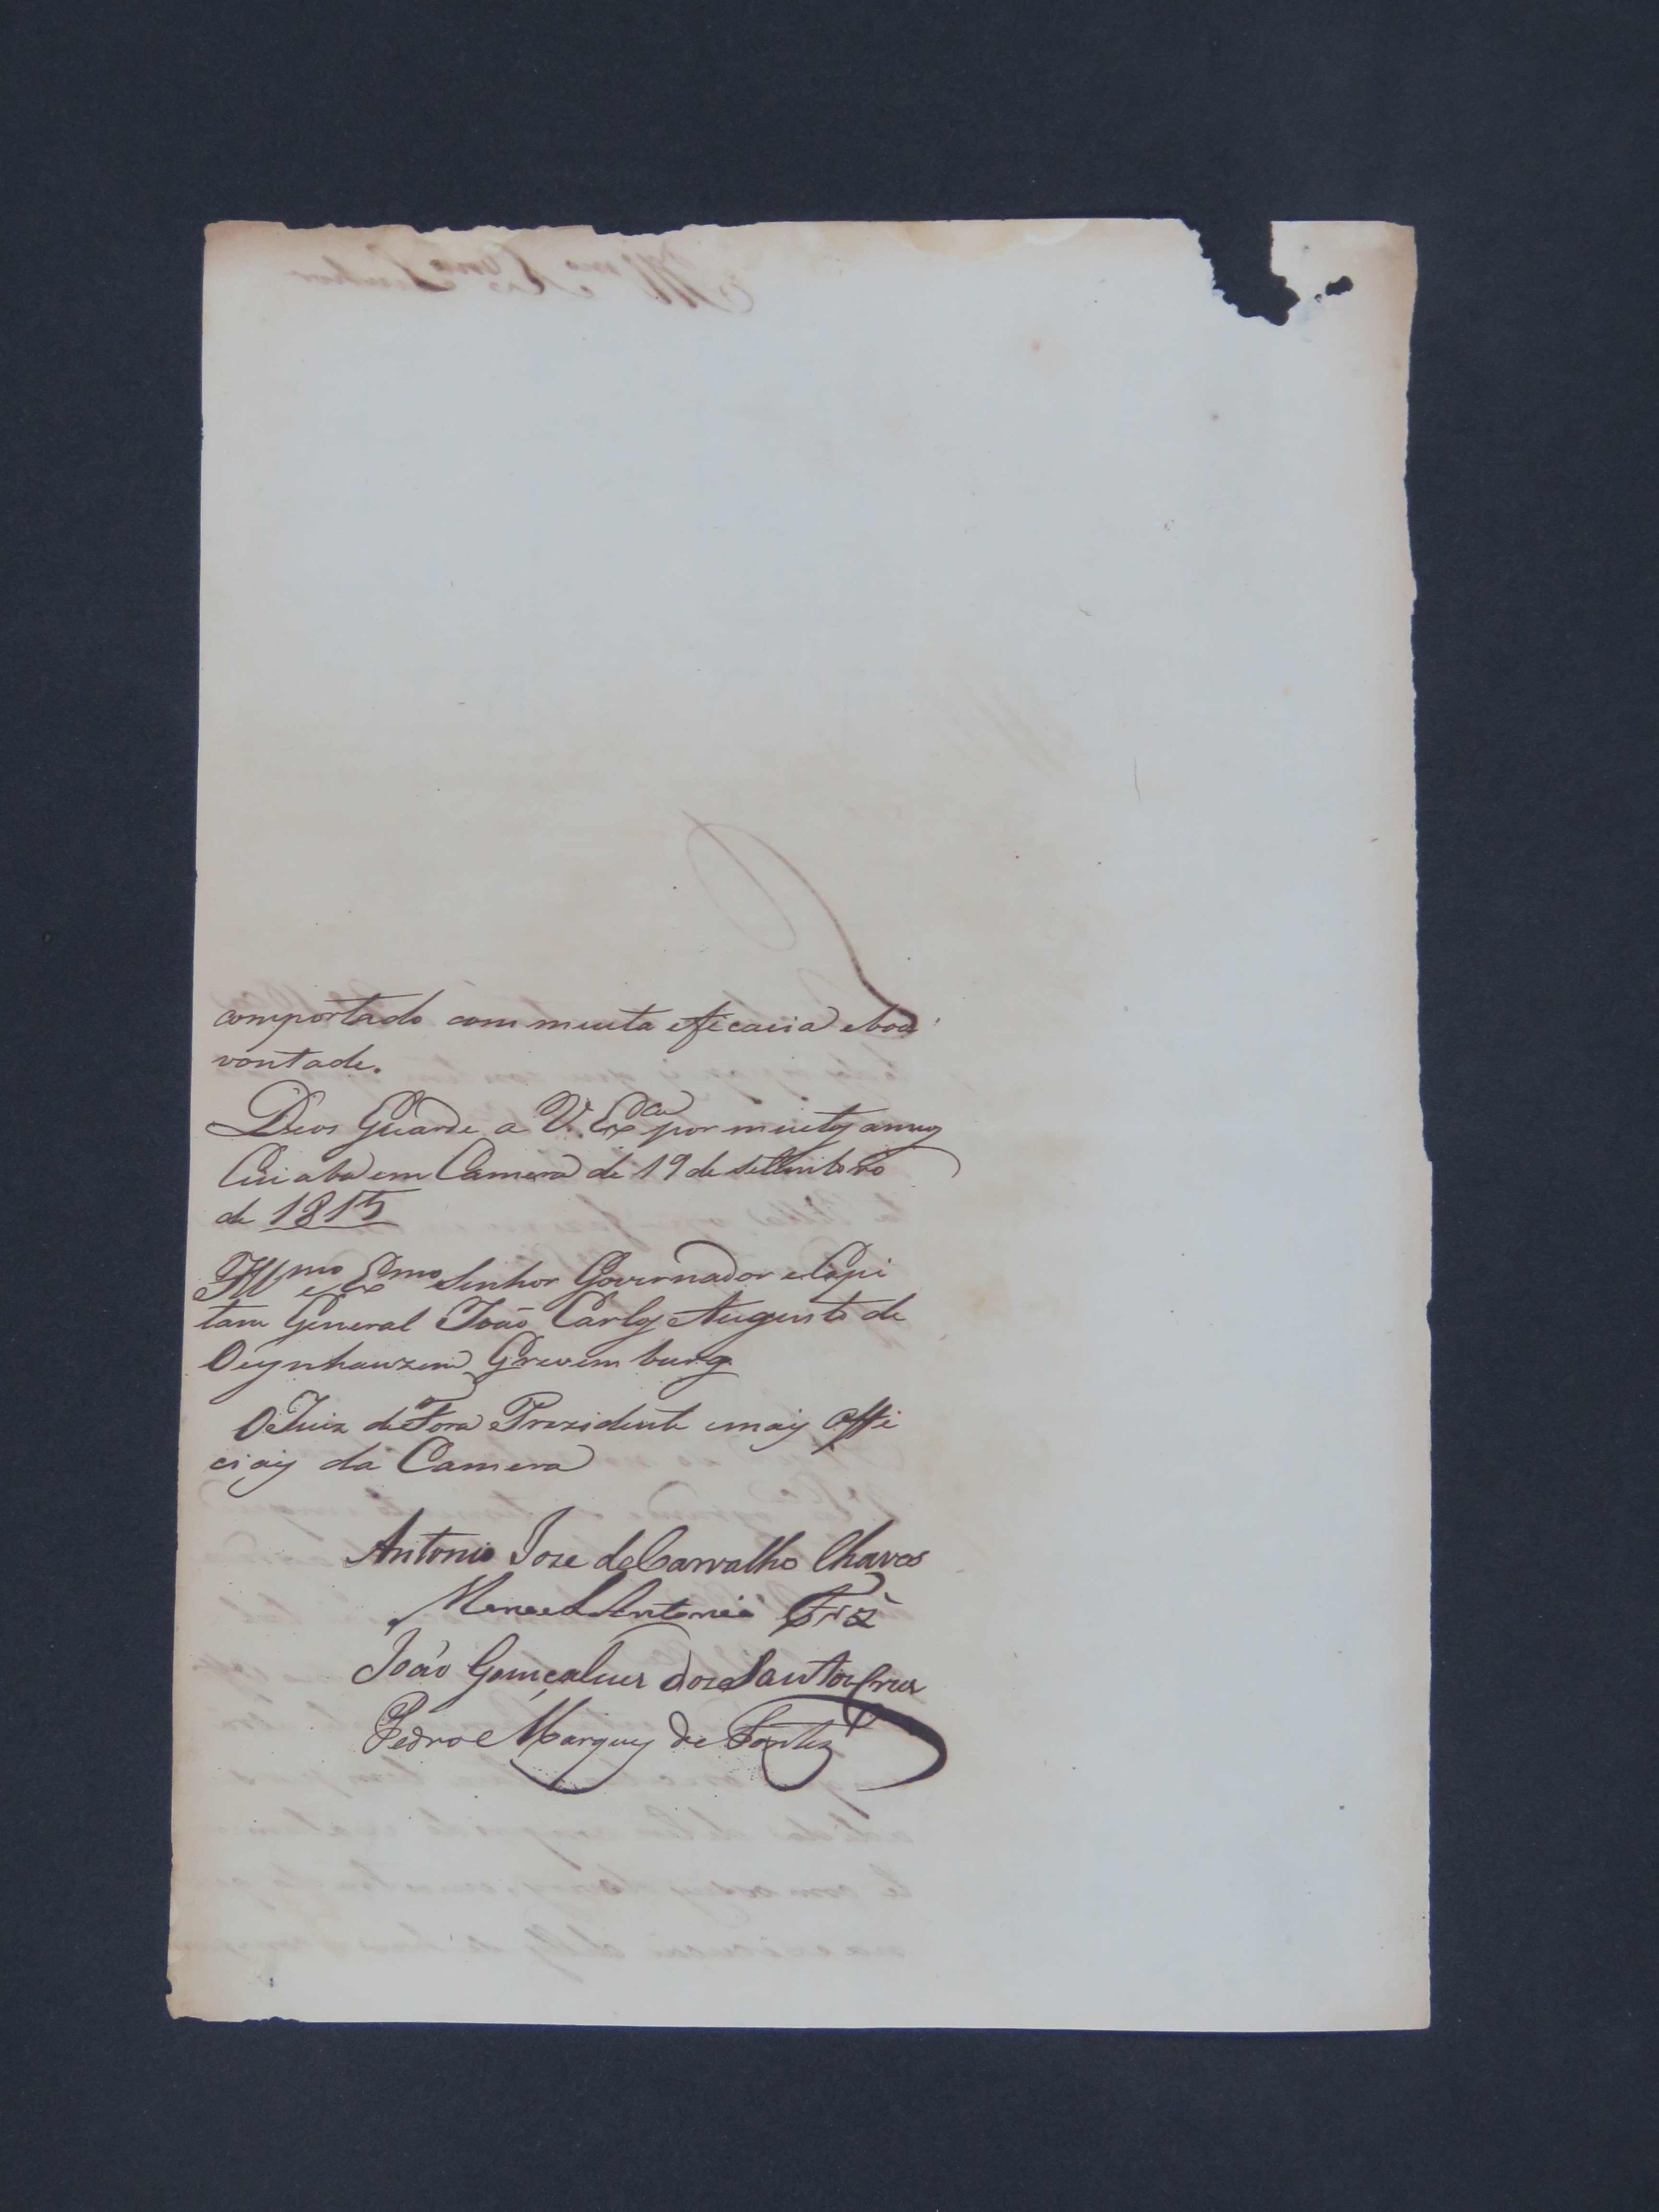 comportado com muita eficacia eboa
vontade.
Deos Guarde a V. Exca por muitos annos
Cuiaba em Camera de 19 de Settembro
de 1815
Illmo e Exmo Senhor Governador e Capi
tam General João Carlos Augusto de
Oeynhauzem Grevemburg
O Juiz de Fora Prezidente emais Offi
ciais da Camera
Antonio Joze de Carvalho Chaves
Manoel Antonio Frz
João Gomçalues dos Santos Cruz
Pedro Marques de Fontes